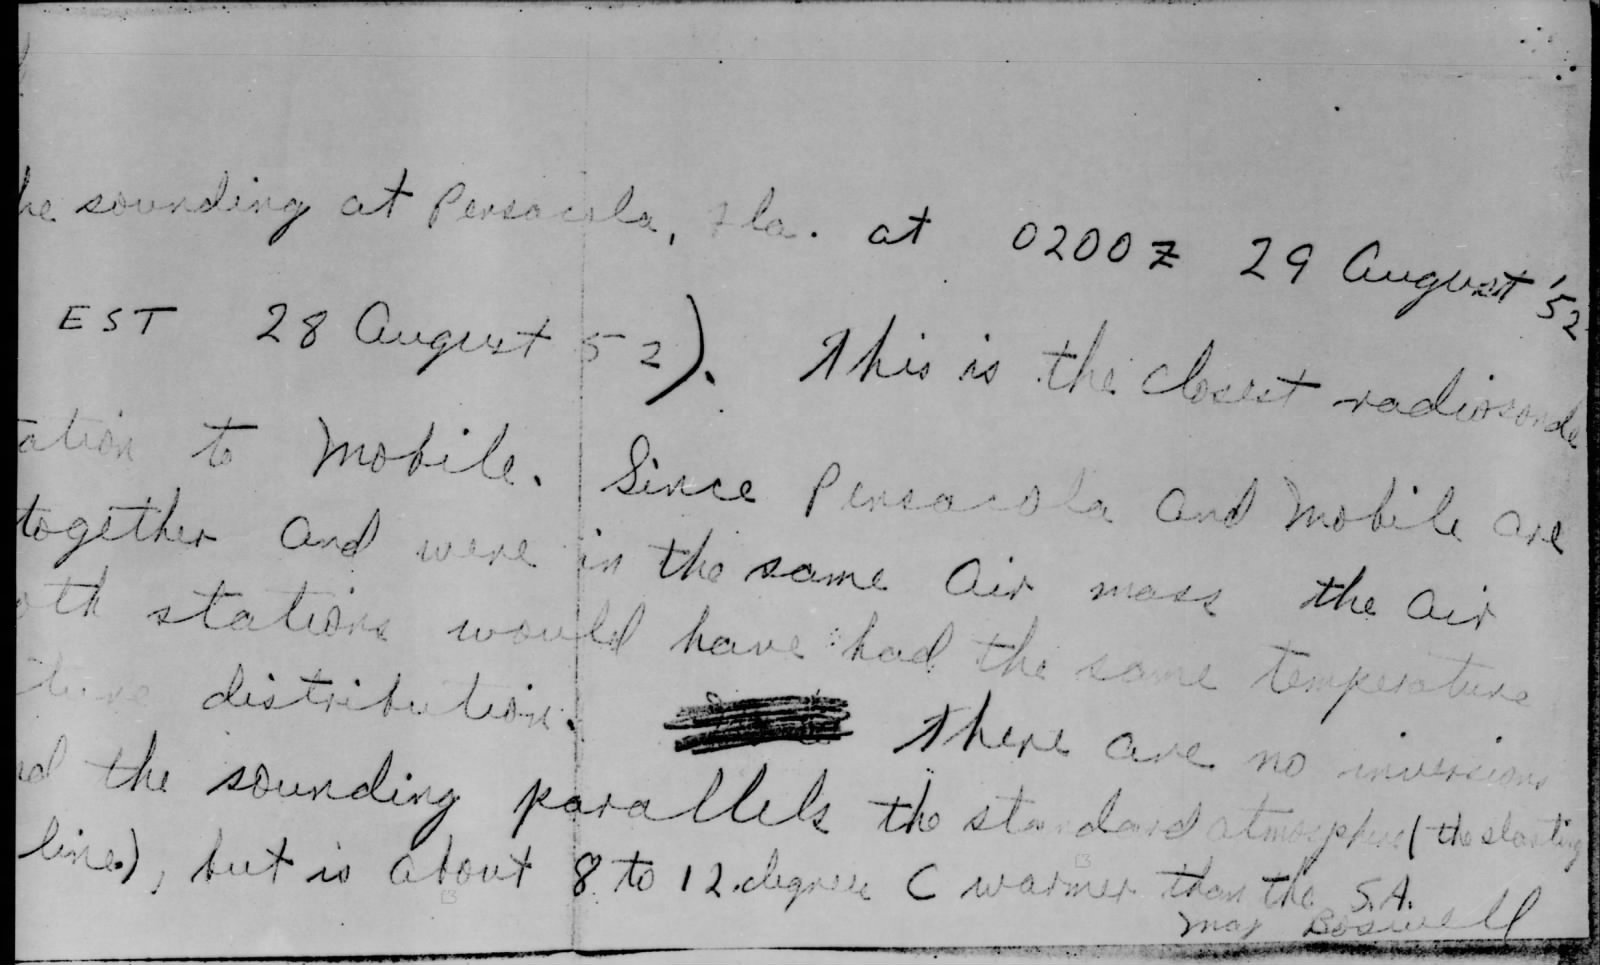 he sounding at Pensacola, Fla. at 0200Z 29 August '52
EST 28 August 52). This is the closest radiosonde
ation to Mobile. Since Pensacola and Mobile are
together and were in the same air mass the air
oth stations would have had the same temperature
ture distribution. There are no inversions
nd the sounding parallels the standard atmosphere (the slanting
line), but is about 8 to 12 degree C warmer than the S.A.
Maj Boswell